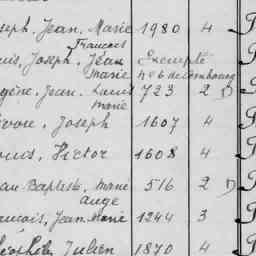 seph, Jean, Marie 1980 4
Francois
uis, Joseph, Jean Exempté
Marie N°6 de Lembourg
gène, Jean, Louis 723 2 D
Marie
Joseph 1607 4
ouis, Victor 1608 4
ean Baptiste, Marie 516 2 D
Ange
ancois, Jean Marie 1244 3
éophile, Julien 1870 4